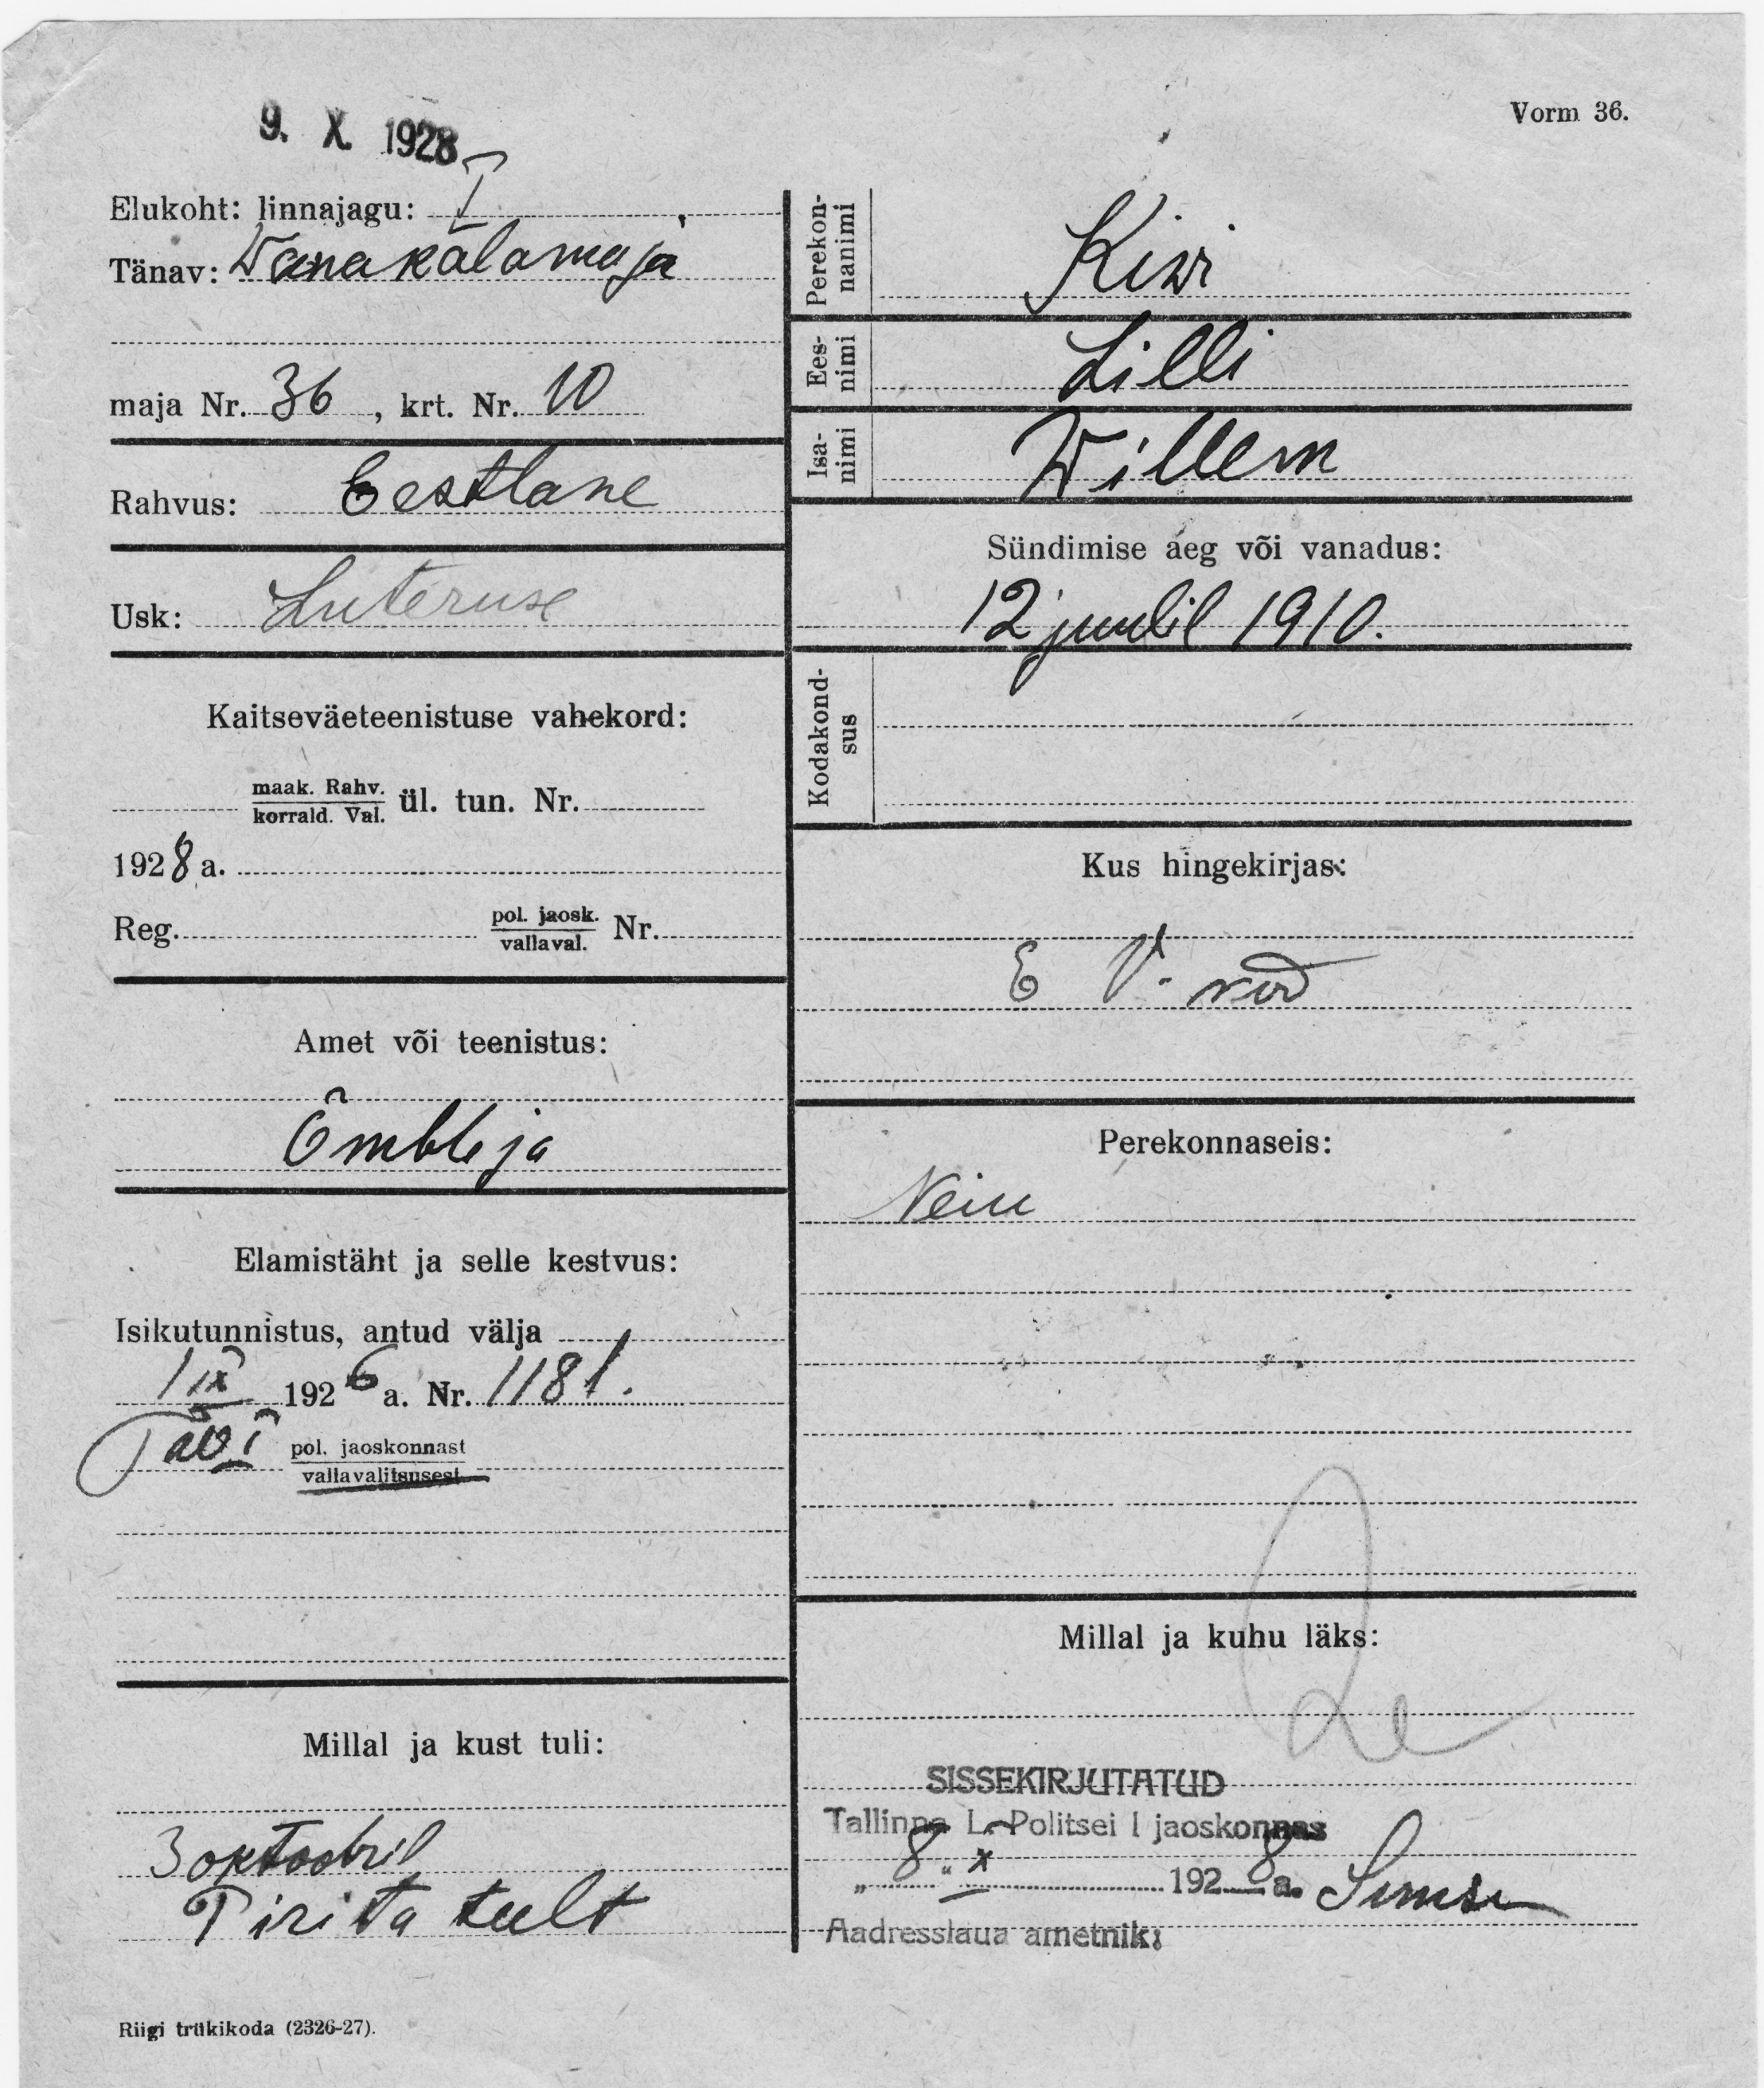 Vorm 36.
9. X. 1928
Elukoht: linnajagu: I
Tänav: Wana kalamaja
maja Nr. 36, krt. Nr. 10
Rahvus: Eestlane
Usk: Luteruse
Kaitseväeteenistuse vahekord:
maak. Rahv.
korrald. Val. ül. tun. Nr.
1928 a.
Reg. pol. jaosk.
vallaval. Nr.
Amet või teenistus:
Õmbleja
Elamistäht ja selle kestvus:
Isikutunnistus, antud välja
1 IX 1926 a. Nr. 1181.
pol. jaoskonnast
vallavalitsusest
Millal ja kust tuli:
3 oktoobril
Pirita teelt
Riigi trükikoda (2326-27).
Perekon-
nanimi
Kiwi
Ees-
nimi
Lilli
Isa-
nimi
Willem
Sündimise aeg või vanadus:
12 juulil 1910.
Kodakond-
sus
Kus hingekirjas:
E V.
Perekonnaseis:
Neiu
Millal ja kuhu läks:
SISSEKIRJUTATUD
Tallinna L. Politsei I jaoskonnas
„8" X 1928 a.
Aadresslaua ametnik: